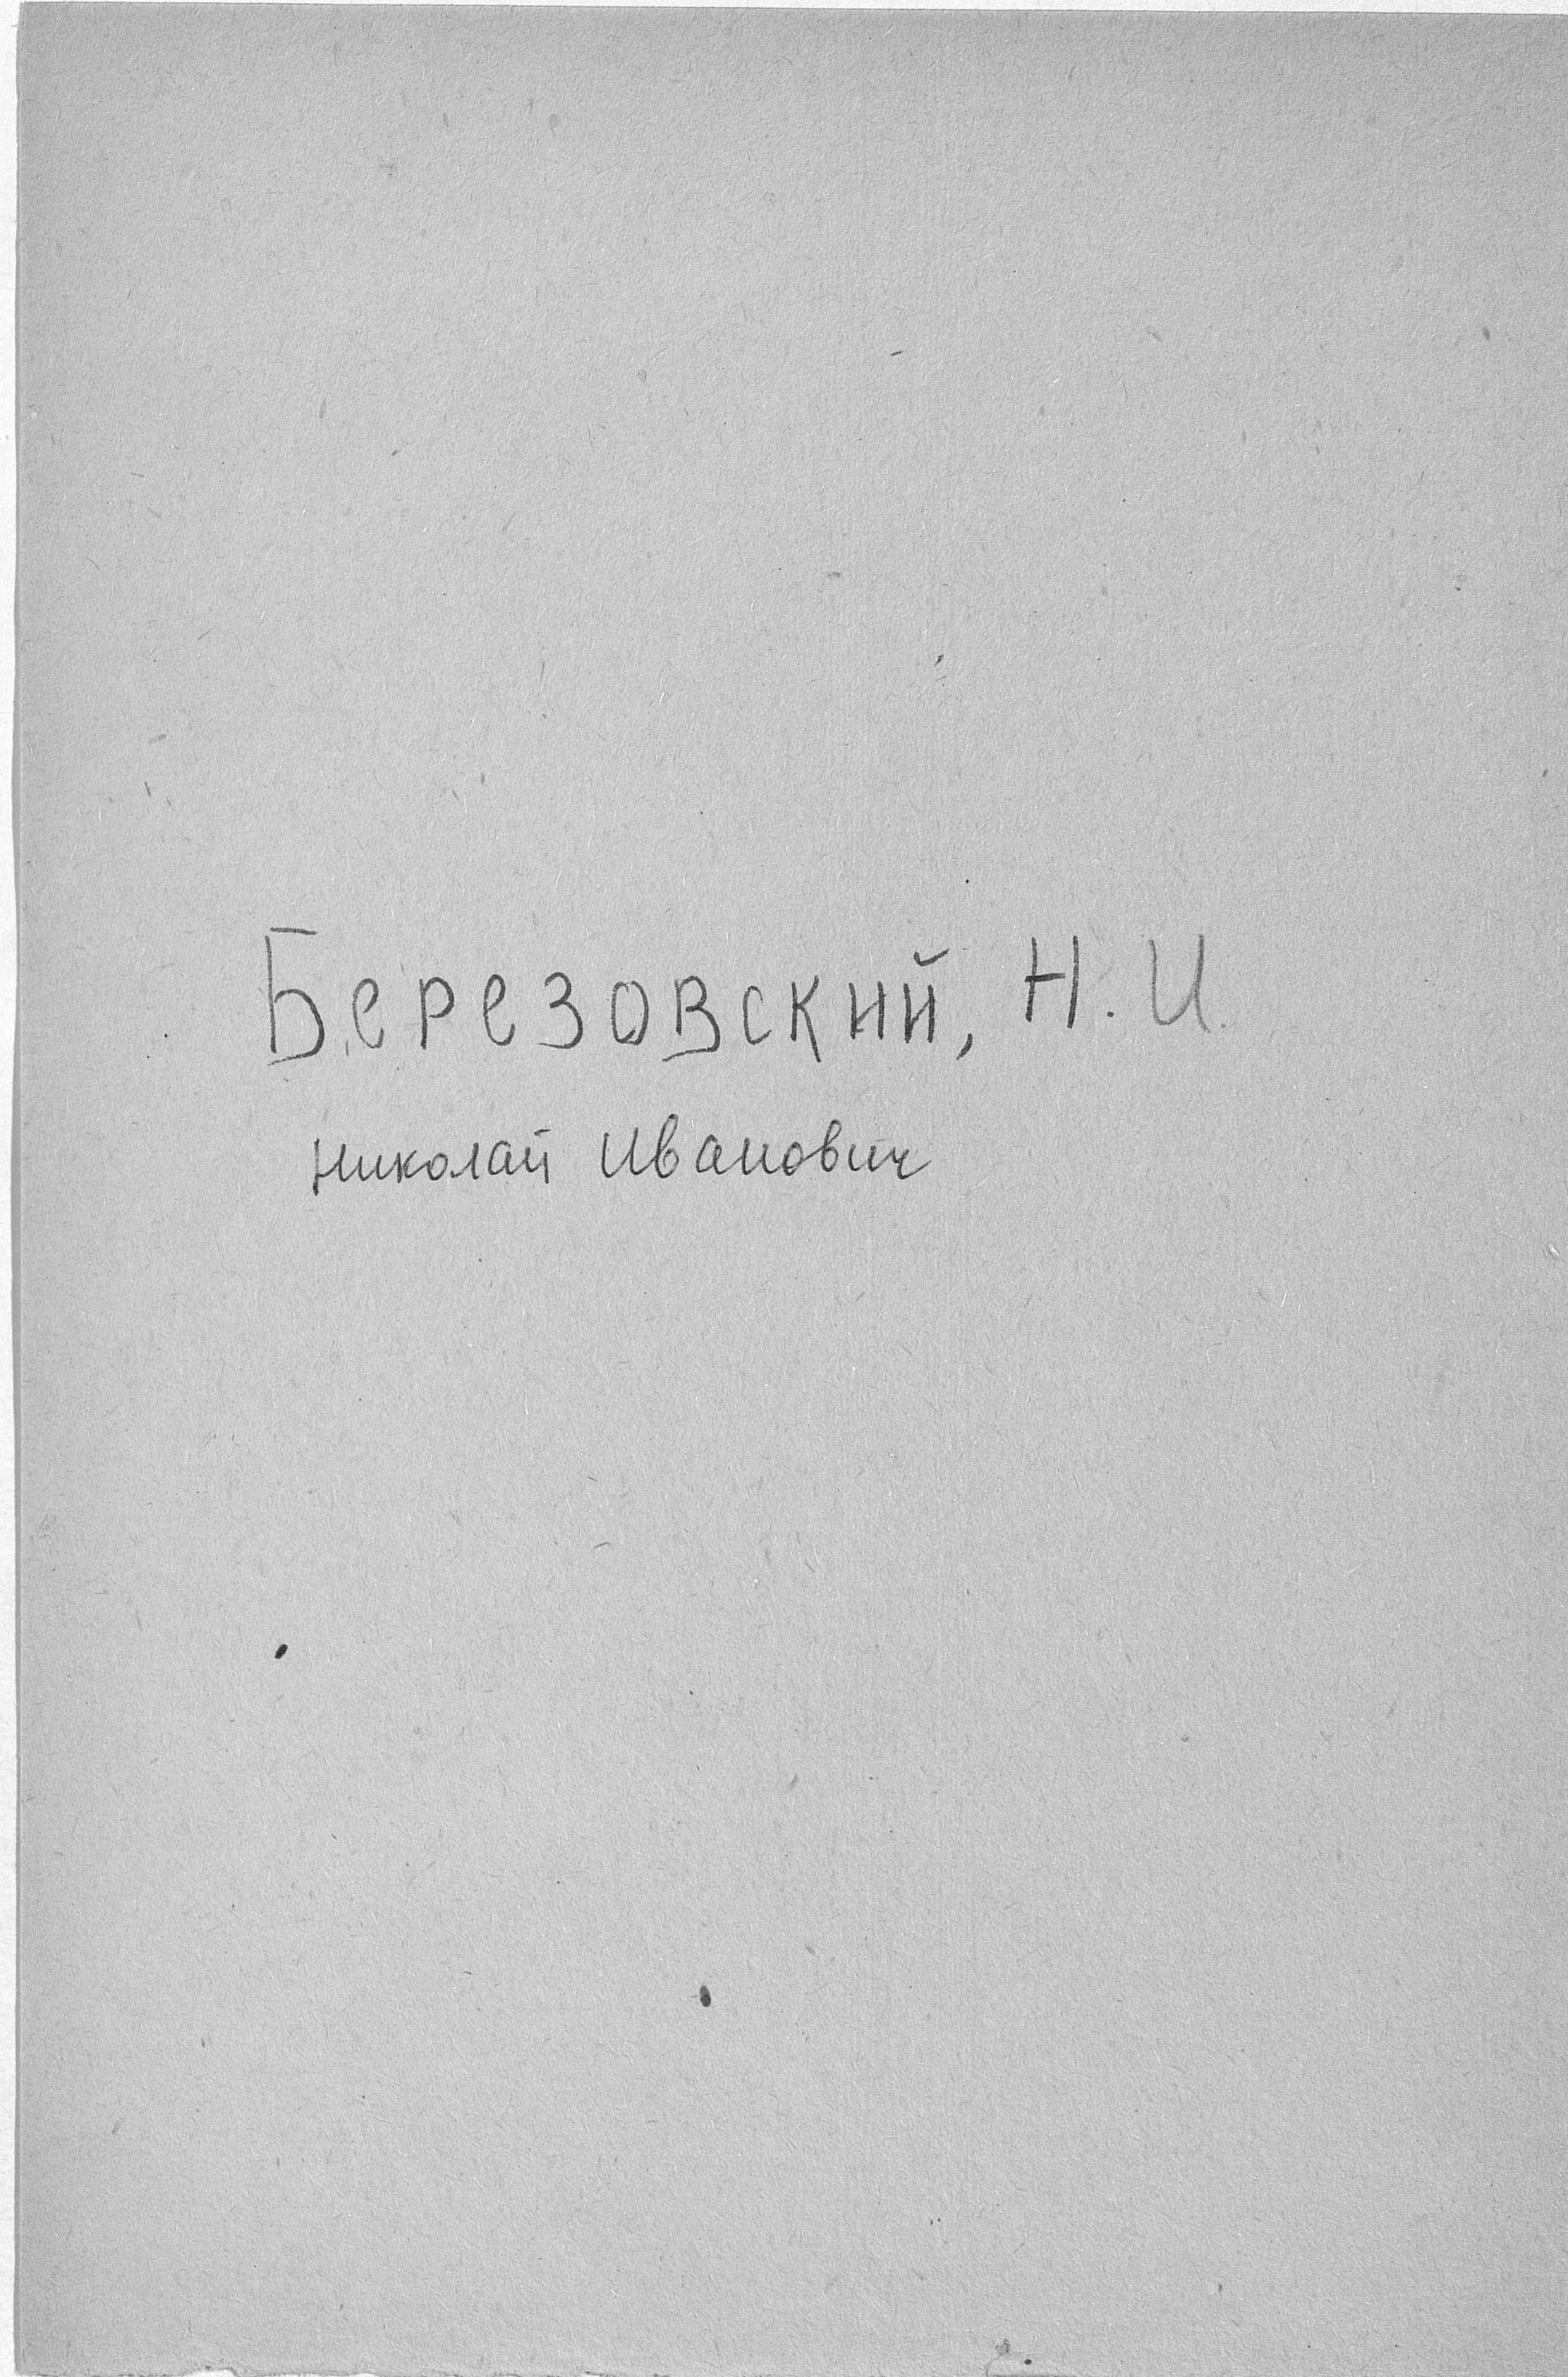 Березовский, Н. И.
Николай Иванович